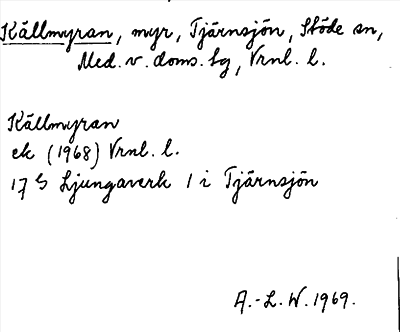 Källmyran, myr, Tjärnsjön, Stöde sn,
Med. v. doms. lg, Vrnl. l.
Källmyran
ek (1968) Vrnl. l.
17 G Ljungaverk 1 i Tjärnsjön
A.-L. W. 1969.